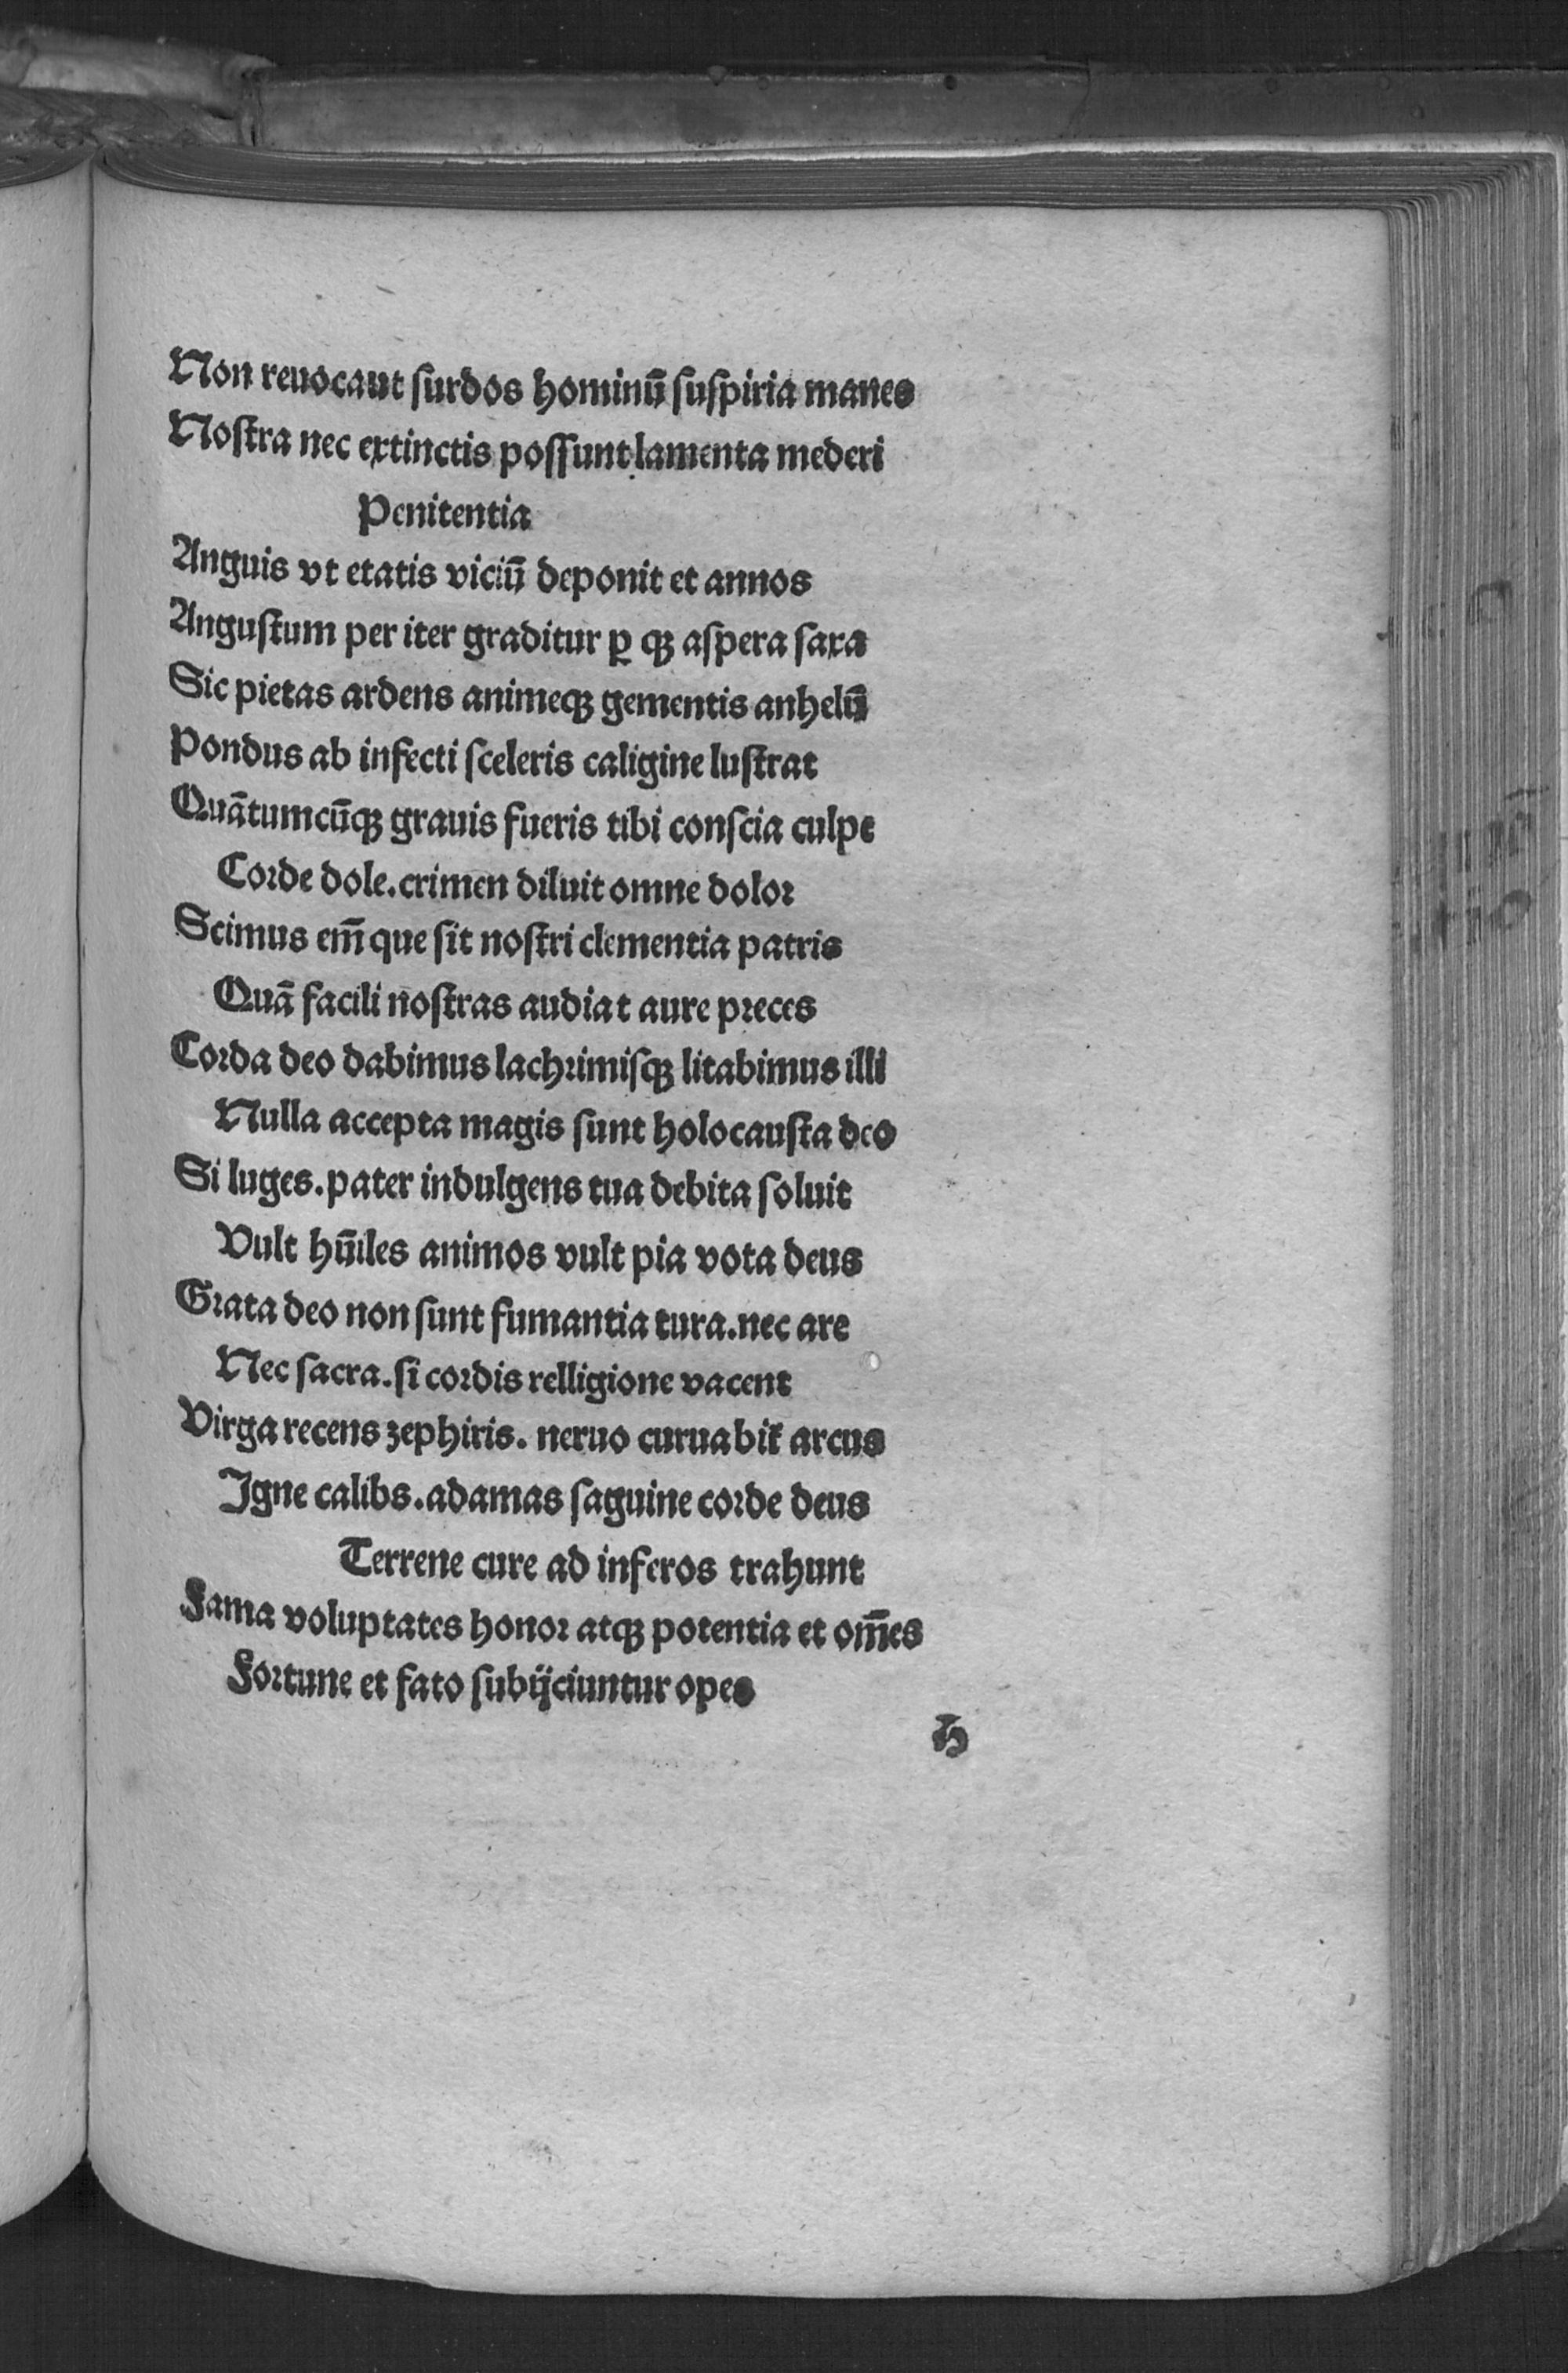 Non reuocaut surdos hominū suspiria manes
Nostra nec extinctis possunt lamenta mederi
Penitentia
Anguis vt etatis viciū deponit et annos
Angustum per iter graditur ꝑ qꝫ aspera saxa
Sic pietas ardens animeqꝫ gementis anhelū
Pondus ab infecti sceleris caligine lustrat
Quātumcūqꝫ grauis fueris tibi conscia culpe
Corde dole. crimen diluit omne dolor
Scimus em̄ que sit nostri clementia patris
Quā facili nostras audiat aure preces
Corda deo dabimus lachrimisqꝫ litabimus illi
Nulla accepta magis sunt holocausta deo
Si luges. pater indulgens tua debita soluit
Vult hūiles animos vult pia vota deus
Grata deo non sunt fumantia tura. nec are
Nec sacra. si cordis relligione vacent
Virga recens zephiris. neruo curuabit̄ arcus
Igne calibs. adamas saguine corde deus
Terrene cure ad inferos trahunt
Fama voluptates honor atqꝫ potentia et om̄es
Fortune et fato subijciuntur opes
H